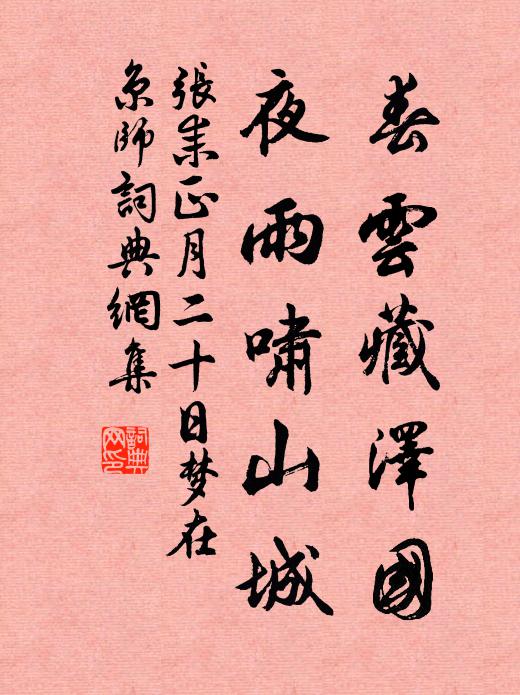 春雲藏澤國
夜雨嘯山城
張耒正月二十日梦在
京師詞典網集
詞典网印